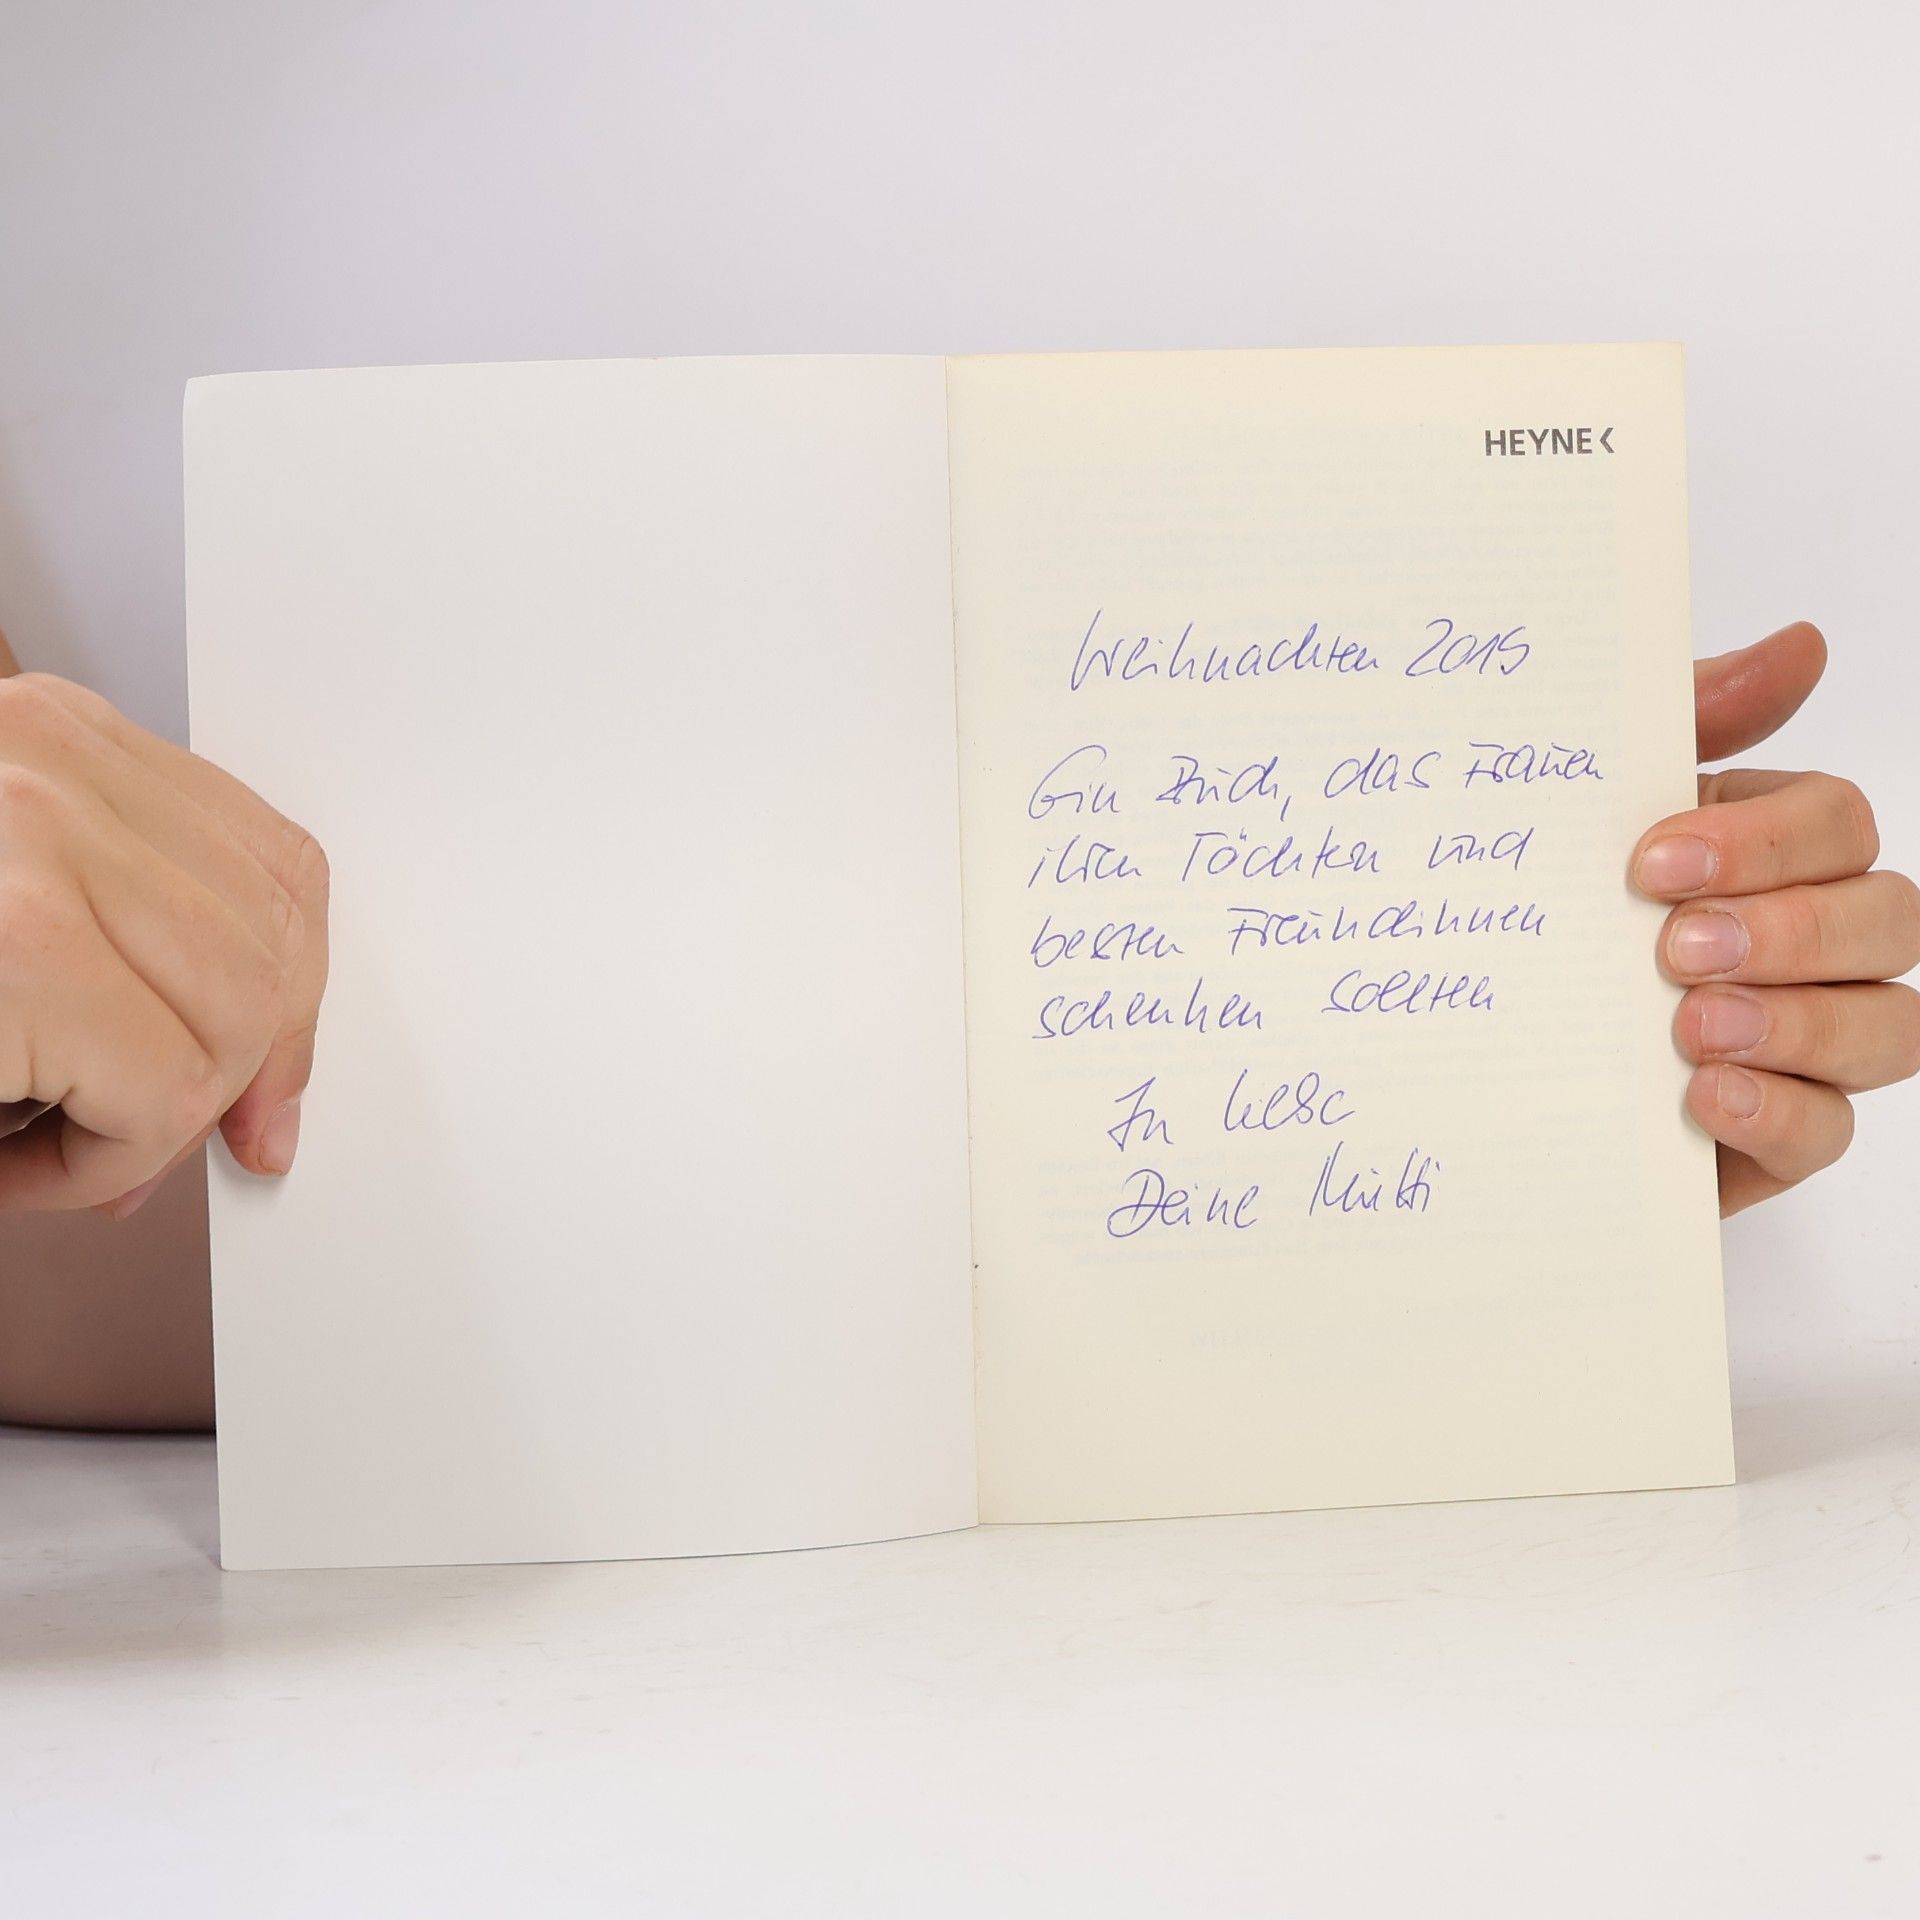 HEYNE <
Weihnachten 2015
Ein Buch, das Frauen
ihren Töchtern und
besten Freundinnen
schenken sollten
In Liebe
Deine Mutti